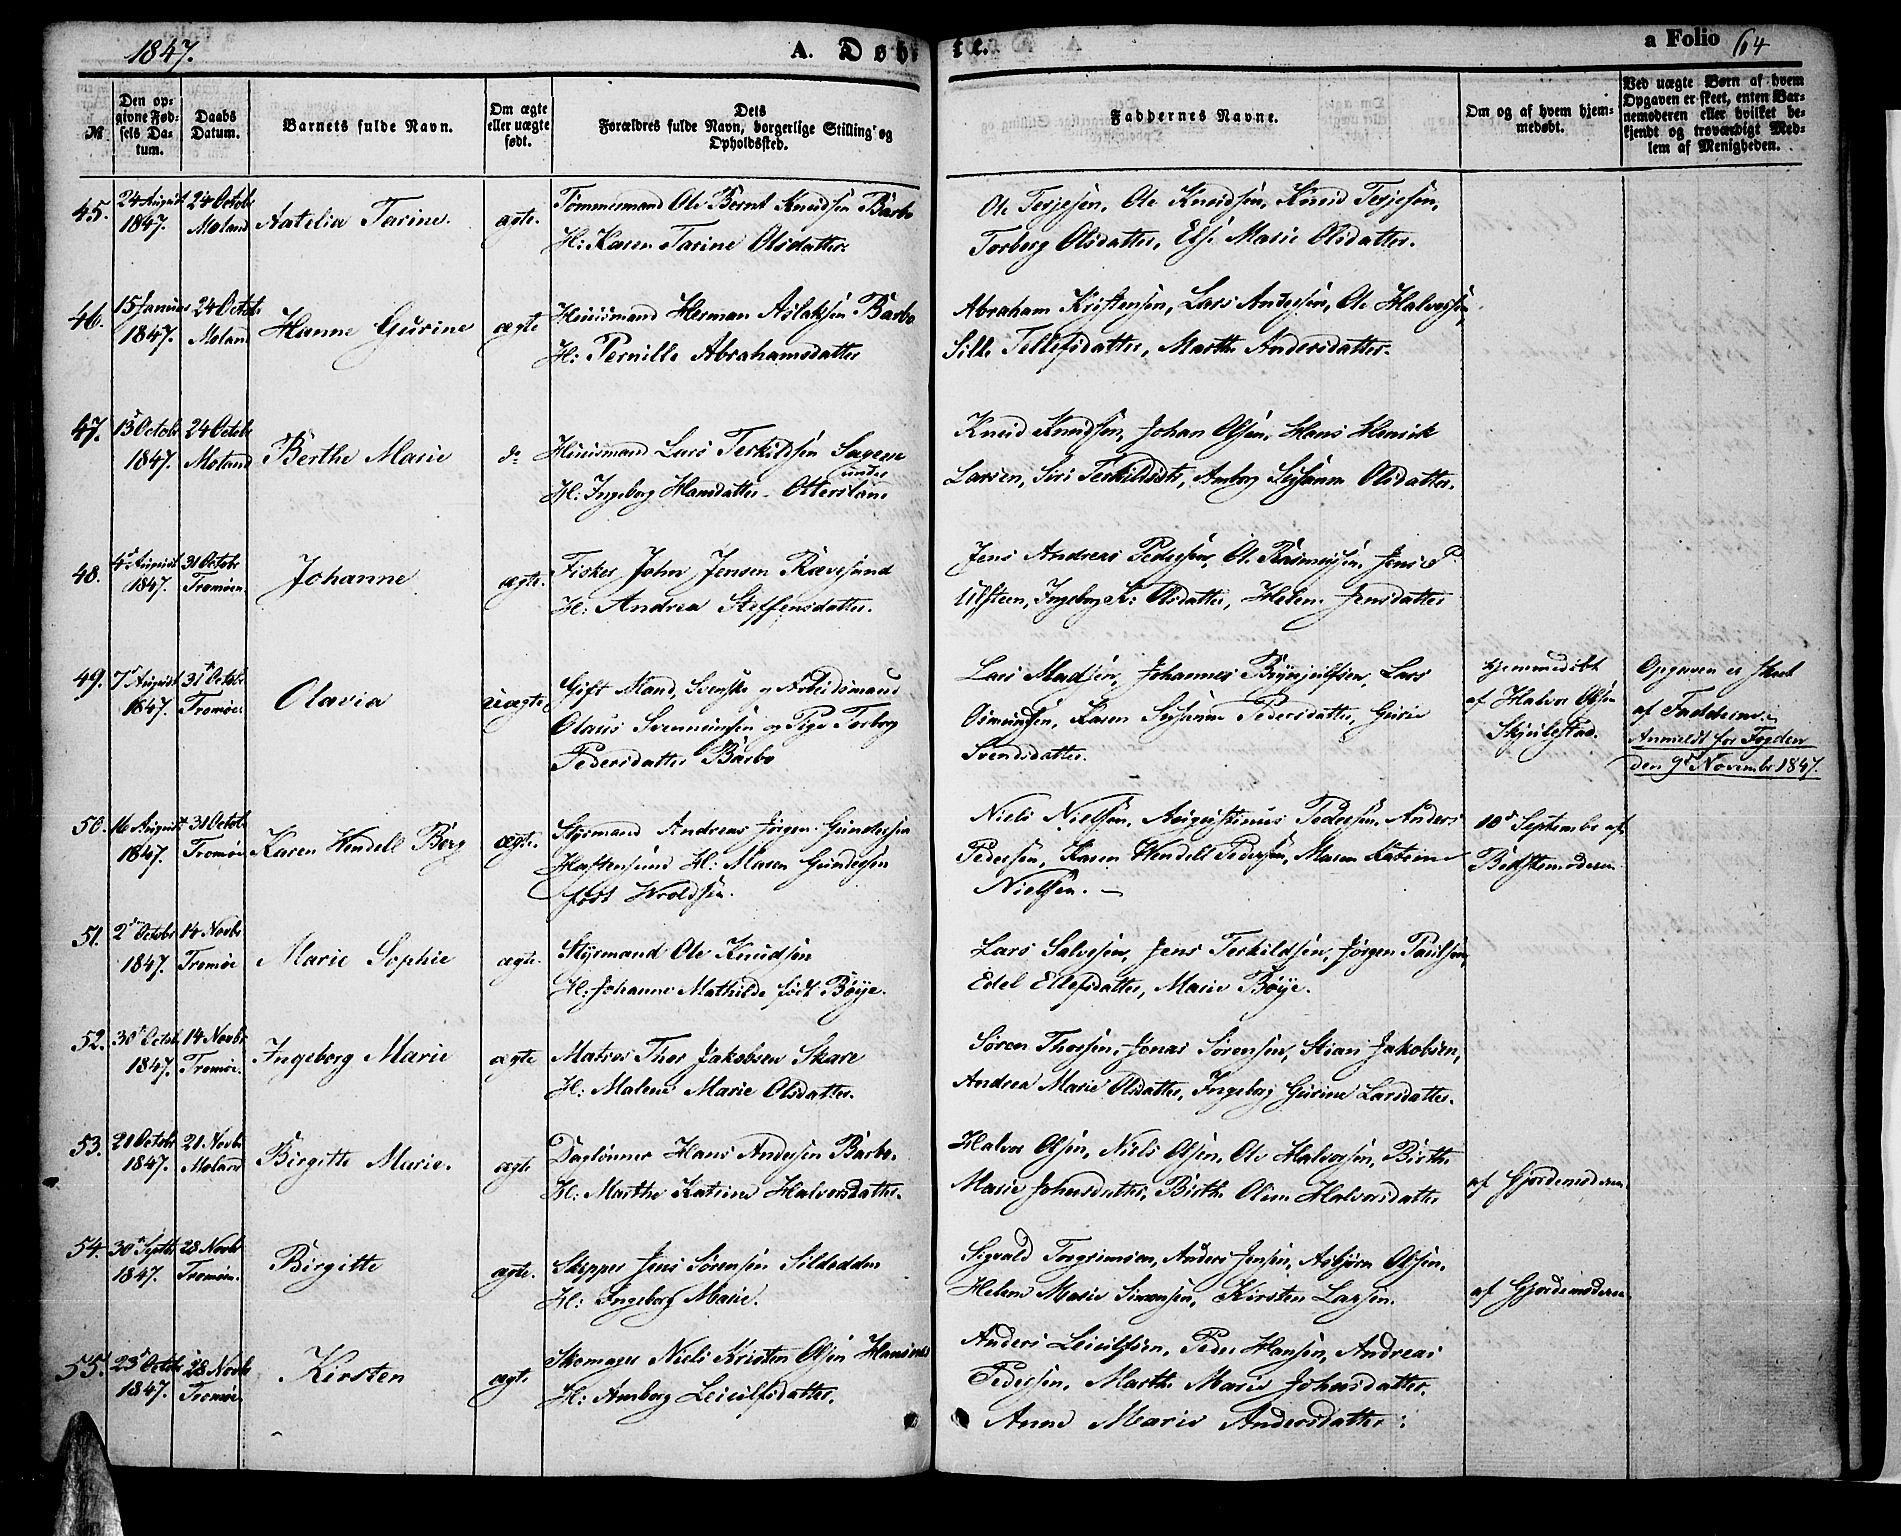 1847.
A. Døbte.
a Folio 64
№
Den op-
givne Fød-
sels Da-
tum.
Daabs
Datum.
Barnets fulde Navn.
Om ægte
eller uægte
født.
Dets
Forældres fulde Navn, borgerlige Stilling og
Opholdssted.
Faddernes Navne.
Om og af hvem hjem-
medøbt.
Ved uægte Børn af hvem
Opgaven er skeet, enten Bar-
nemoderen eller hvilket be-
kjendt og troværdigt Med-
lem af Menigheden.
45.
24 August
1847.
24 Octobr
Moland
Aatelia Tarine.
ægte.
Tømmermand Ole Bernt Knudsen Barbo
H: Karen Tarine Olsdatter.
Ole Terjesen, Ole Knudsen, Knud Terjesen,
Torberg Olsdatter, Else Marie Olsdatter.
46.
15 Januar
1847.
24 Octobr
Moland
Hanne Gurine
ægte
Huusmand Herman Aslaksen Barbo
H: Pernille Abrahamsdatter
Abraham Kristensen, Lars Andersen, Ole Halvorsen,
Silke Tellefsdatter, Marthe Andersdatter.
47.
13 Octobr
1847.
24 Octobr
Moland
Berthe Marie
do
Huusmand Lars Terkildsen Sagene
under
H: Ingeborg Hansdatter Otterslan
Knud Knudsen, Johan Olsen, Hans Henrik
Larsen, Siri Terkildsdtr, Amborg Susanne Olsdatter.
48.
4 August
1847.
31 Octobr
Tromøen.
Johanne
ægte.
Fisker John Jensen Rævesund
H: Andrea Steffensdatter.
Jens Andreas Pedersen, O. Rasmusen, Jens P.
Ulsteen, Ingeborg K: Olsdatter, Helene Jensdatter
49.
7 August
1847.
31 Octobr
Tromøe.
Olavia
uægte
Gift Mand, Svenske og Arbeidsmand
Olaus Svenningsen og Pige Torborg
Pedersdatter Barbo
Lars Madsen, Johannes Brynjulfsen, Lars
Osmundsen, Karen Susanne Pedersdatter, Gurie
Svendsdatter.
hjemmedøbt
af Halvor Olsen
Skjulestad.
Opgaven er skeet
af Fadderne.
Anmeldt for Fogden
den 9de Novembr 1847.
50.
16 August
1847.
31 Octobr
Tromøe
Karen Wendell Berg
ægte.
Styrmand Andreas Jørgen Gundersen
Hastensund H: Maren Gundersen
født Woldsen.
Niels Nielsen, Augustinus Pedersen, Anders
Pedersen, Karen Wendell Pedersen, Maren Katrine
Nielsen.
10de Septembr af
Bedstemoderen
51.
2den Octobr
1847.
14 Novbr
Tromøe
Marie Sophie
ægte.
Styrmand Ole Knudsen
H: Johanne Mathilde født Bøije.
Lars Salvesen, Jens Terkildsen, Jørgen Paulsen,
Edel Ellefsdatter, Marie Bøije.
52.
30 Octobr
1847.
14 Novbr
Tromøe.
Ingeborg Marie
ægte
Matros Thor Jakobsen Skare
H: Malene Marie Olsdatter.
Søren Thorsen, Jonas Sørensen, Stian Jakobsen,
Andrea Marie Olsdatter, Ingeborg Gurine Larsdatter.
53.
21 Octobr
1847.
21 Novbr
Moland
Birgitte Marie.
ægte
Daglønner Hans Andersen Barbo.
H: Marthe Katrine Halvorsdatter.
Halvor Olsen, Niels Olsen, Ole Halvorsen, Birthe
Marie Johnsdatter, Birthe Oline Halvorsdatter
af Gjordemoderen.
54.
30 Septbr
1847.
28 Novbr
Tromøen.
Birgitte
ægte.
Skipper Jens Sørensen Sildodden
H: Ingeborg Marie.
Sigvald Torgrimsen, Anders Jensen, Asbjørn Olsen.
Helene Marie Simonsen, Kirsten Larsen.
af Gjordemoderen
55.
23 Octobr
1847.
28 Novbr
Tromøe.
Kirsten
ægte
Skomager Niels Kristen Olsen
H: Amborg Leiulfsdatter.
Anders Leiulfsen, Peder Hansen, Andreas
Pedersen, Marthe Marie Johnsdatter,
Anne Marie Andersdatter.